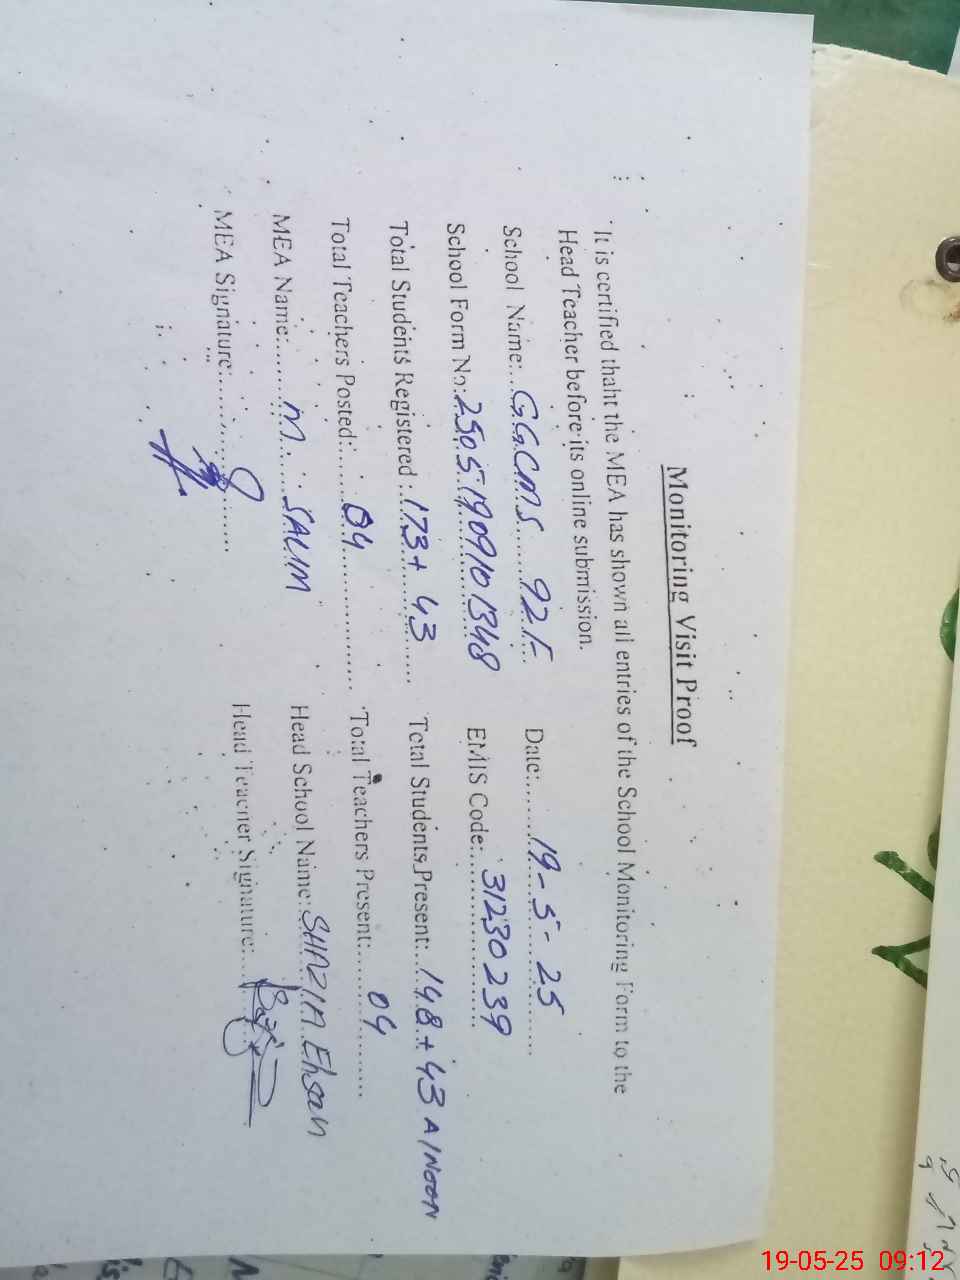 Monitoring Visit Proof
It is certified thaht the MEA has shown all entries of the School Monitoring Form to the
Head Teacher before its online submission.
School Name:...GGCMS 92/F Date:.......19-5-25
School Form No:25051909101348 EMIS Code:..31230239
Total Students Registered:..173+43 Total Students Present:..148+43 A/NOON
Total Teachers Posted:.....04 Total Teachers Present:.....04
MEA Name:......M. SALIM Head School Name:SHAZIA Ehsan
MEA Signature:............ Head Teacher Signature:....
19-05-25 09:12